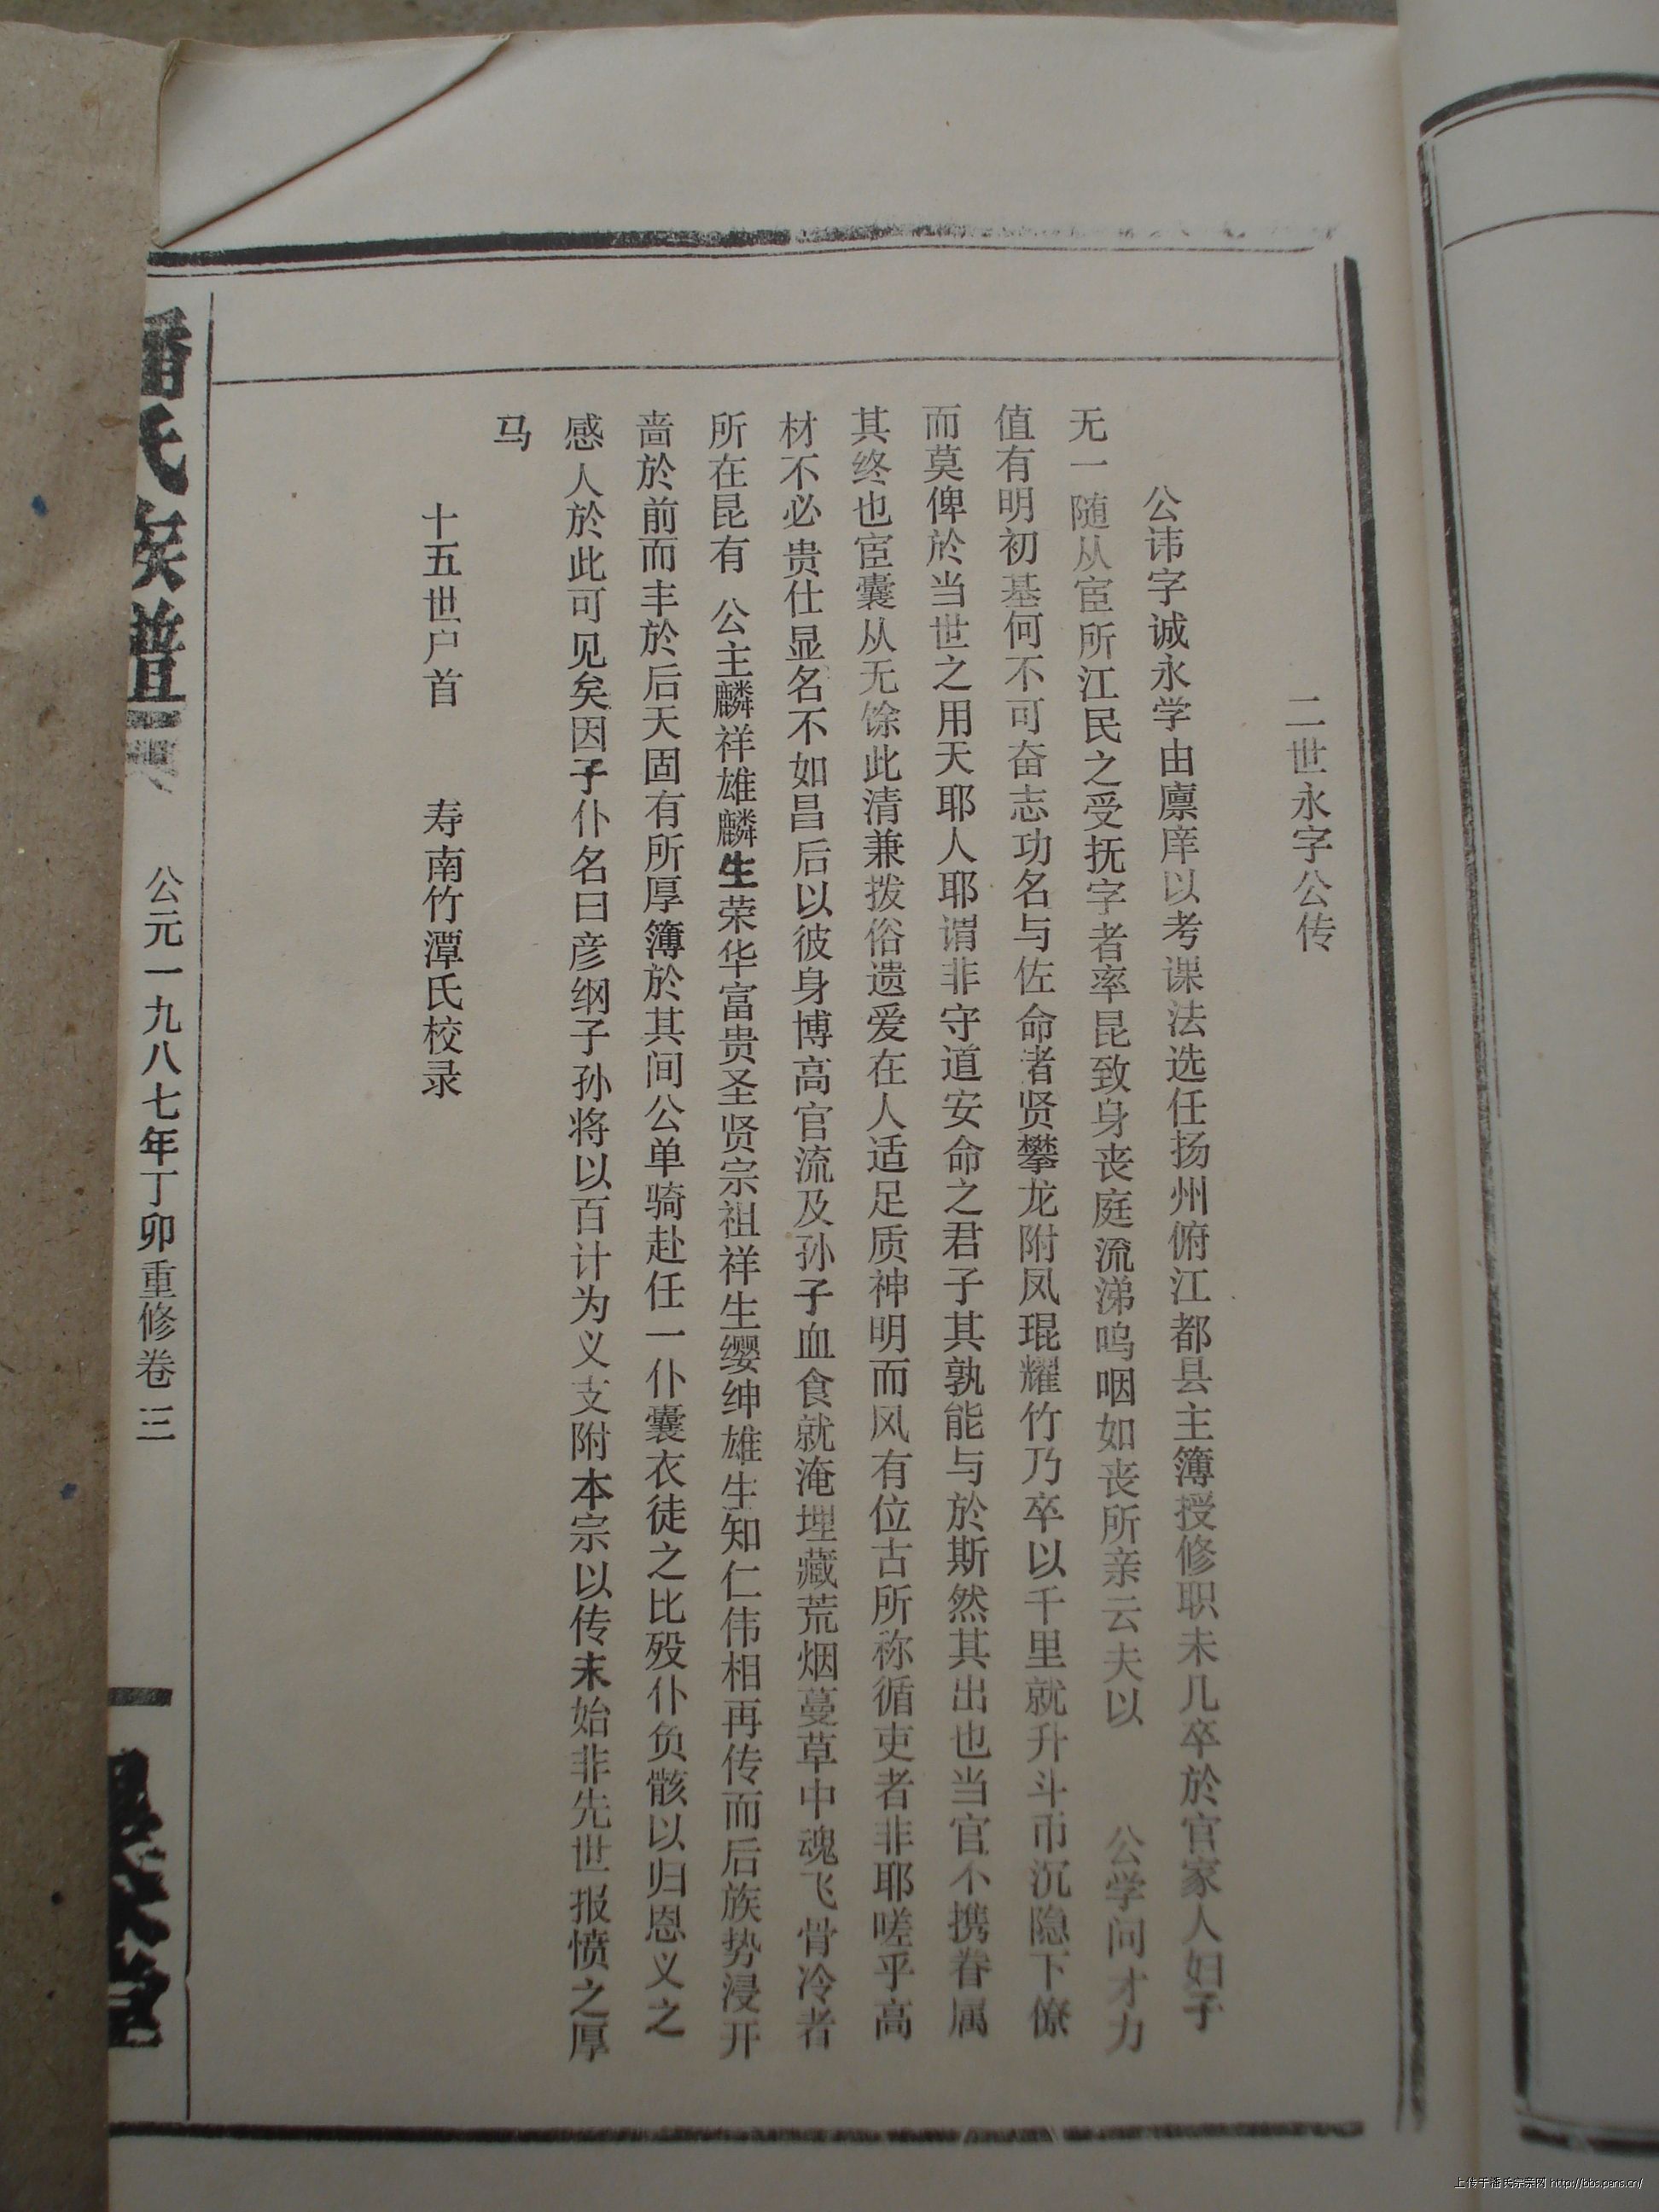 二世永字公传
公讳字诚永学由廪庠以考课法选任扬州俯江都县主簿授修职未几卒於官家人妇子
无一随从宦所江民之受抚字者率昆致身丧庭流涕呜咽如丧所亲云夫以 公学问才力
值有明初基何不可奋志功名与佐命者贤攀龙附凤琨耀竹乃卒以千里就升斗币沉隐下僚
而莫俾於当世之用天耶人耶谓非守道安命之君子其孰能与於斯然其出也当官不携眷属
其终也宦囊从无馀此清兼拨俗遗爱在人适足质神明而风有位古所称循吏者非耶嗟乎高
材不必贵仕显名不如昌后以彼身博高官流及孙子血食就淹埋藏荒烟蔓草中魂飞骨冷者
所在昆有 公主麟祥雄麟生荣华富贵圣贤宗祖祥生缨绅雄生知仁伟相再传而后族势浸开
啬於前而丰於后天固有所厚簿於其间公单骑赴任一仆囊衣徒之比殁仆负骸以归恩义之
感人於此可见矣因子仆名曰彦纲子孙将以百计为义支附本宗以传末始非先世报愤之厚
马
十五世户首 寿南竹潭氏校录
潘氏族谱
公元一九八七年丁卯重修卷三
上传于潘氏宗亲网 http://bbs.pans.cn/